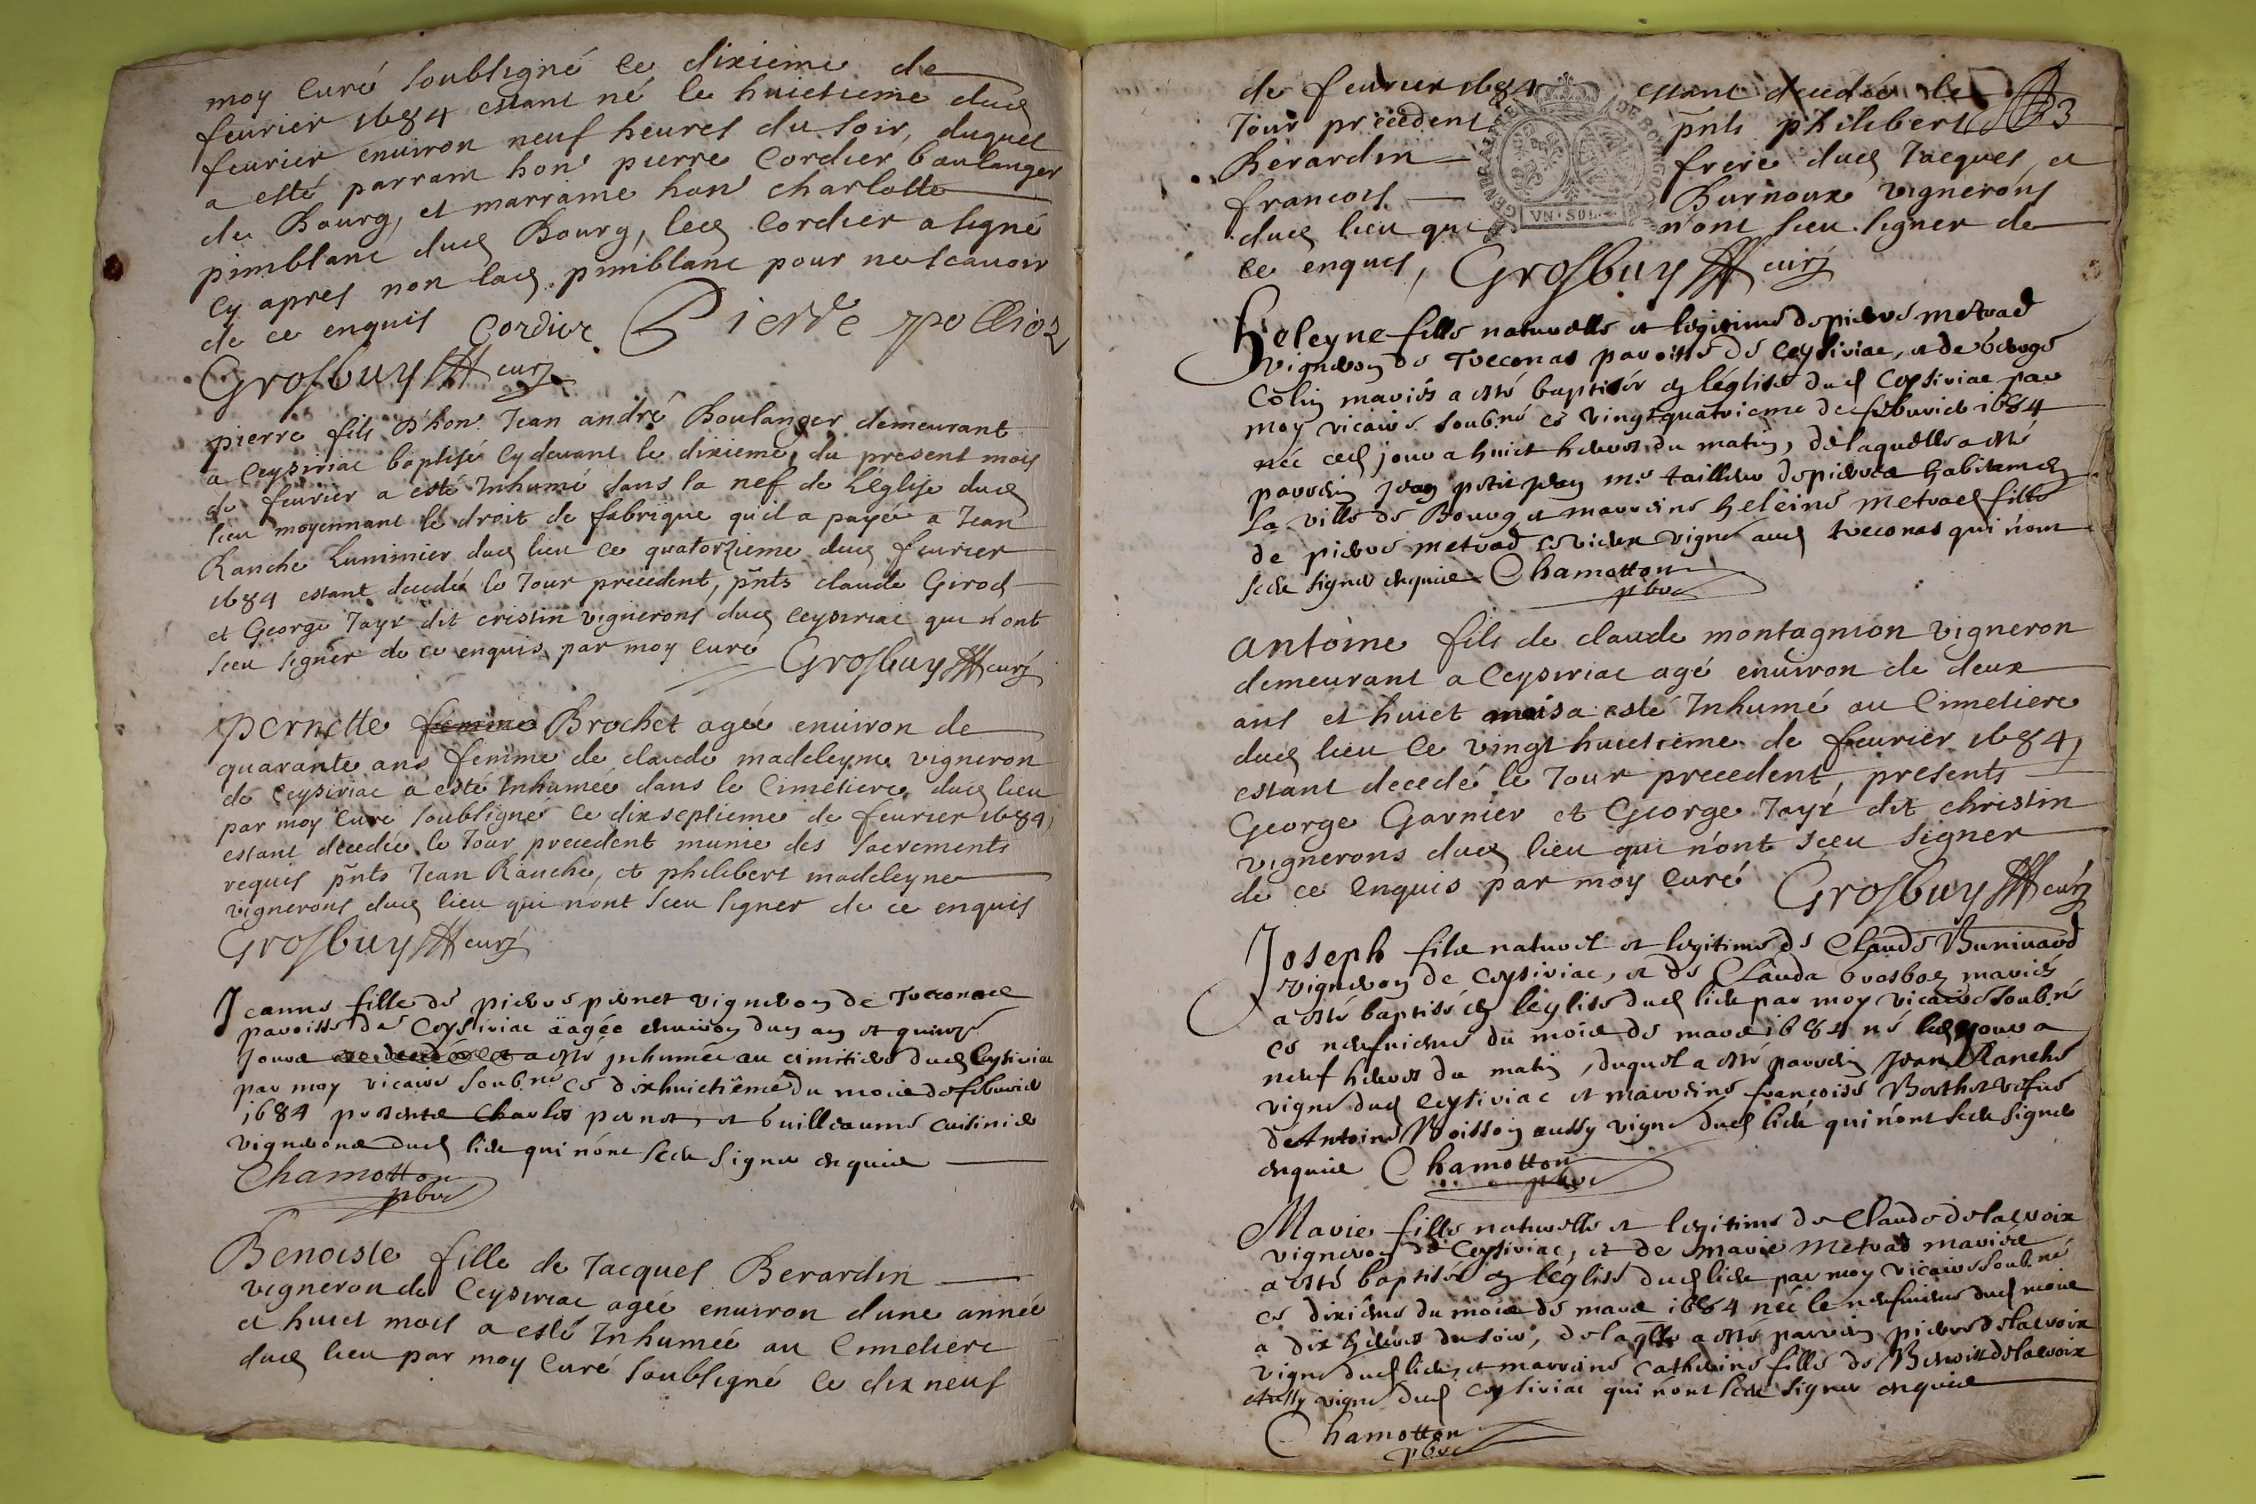 moy curé soubsigné ce dixieme de
feurier 1684 estant né le huictieme dud
feurier enuiron neuf heures du soir, duquel
a esté parrain hon. pierre Cordier boulanger
de Bourg, et marraine hon. charlotte
pimblanc dud Bourg, led Cordier a signé
cy apres non lad pimblanc pour ne scauoir
de ce enquis Cordier Pierre
Grosbuy curé
pierre fils d'hon. Jean andré Boulanger demeurant
a Ceysiriac baptisé cy deuant le dixieme du present mois
de feurier a esté Inhumé dans la nef de l'église dud
lieu moyennant le droit de fabrique qu'il a payée a Jean
Ranche Luminier dud lieu ce quatorzieme dud feurier
1684 estant decedé le Jour precedent, pnts claude Girod
et George Tayr dit cristin vignerons dud ceysiriac qui n'ont
sceu signer de ce enquis par moy curé Grosbuy curé
pernette femme Brochet agée enuiron de
quarante ans femme de claude madeleyne vigneron
de Ceysiriac a esté Inhumée dans le Cimetiere dud lieu
par moy Curé soubsigné ce dixseptieme de feurier 1684,
estant decedée le Jour precedent munie des sacrements
requis pnts Jean Ranche, et philibert madeleyne
vignerons dud lieu qui n'ont sceu signer de ce enquis
Grosbuy curé
Jeanne fille de pierre pernet vigneron de Treconas
paroisse de Ceysiriac aagée enuiron dun an et quinze
Jours a esté inhumée au cimitiere dud Ceysiriac
par moy vicaire soub.né ce dixhuictieme du mois de feburier
1684 presents Charles pernet et Guilleaume Cuisinier
vignerons dud lieu qui n'ont sceu signer enquis
Chamotton
pbre
Benoiste fille de Jacques Berardin
vigneron de Ceysiriac agée enuiron d'une année
et huict mois a esté Inhumée au Cimetiere
dud lieu par moy Curé soubsigné ce dix neuf
de feurier 1684 estant decedée le
Jour precedent pnts philibert 53
GENERALITE DE BOURGOGNE
Berardin frere dud Jacques, et
francois Burnoux vignerons
VN · SOL
dud lieu qui n'ont sceu signer de
ce enquis, Grosbuy curé
Heleyne fille naturelle et legitime de pierre metrad
vigneron de Treconas paroisse de Ceysiriac, et de George
Colin mariés a esté baptisée en l'église dud Ceysiriac par
moy vicaire soub.né ce vingtquatrieme de feburier 1684
née ced jour a huict heures du matin, de laquelle a esté
parrein Jean petit Jean me tailleur de pierres habitant en
la ville de Bourg et marreine heleine metrad fille
de pierre metrad vigne aud treconas qui n'ont
sceu signer enquis Chamotton
pbre
antoine fils de claude montagnion vigneron
demeurant a Ceysiriac agé enuiron de deux
ans et huict mois a esté Inhumé au Cimetiere
dud lieu ce vingt huictieme de feurier 1684,
estant decedé le Jour precedent, presents
George Garnier et George Tayr dit christin
vignerons dud lieu qui n'ont sceu signer
de ce enquis par moy curé Grosbuy curé
Joseph fils naturel et legitime de Claude Buniuard
vigneron de Ceysiriac, et de Clauda Grosboz mariés
a esté baptisé en l'église dud lieu par moy vicaire soub.né
ce neufuieme du mois de mars 1684 né led jour a
neuf heures du matin, duquel a esté parrein Jean Ranche
vigne dud Ceysiriac et marreine francoise Berthet
de Antoine Boisson aussy vigne dud lieu qui n'ont sceu signer
enquis Chamotton
pbre
Marie fille naturelle et legitime de Claude delacroix
vigneron de Ceysiriac, et de marie metrad mariés
a esté baptisée en l'église dud lieu par moy vicaire soub.né
ce dixieme du mois de mars 1684 née le neufuieme dud mois
a dix heures du soir, de laqlle a esté parrein pierre delacroix
vigne dud lieu, et marreine Catherine fille de Benoist delacroix
aussy vigne dud Ceysiriac qui n'ont sceu signer enquis
Chamotton
pbre